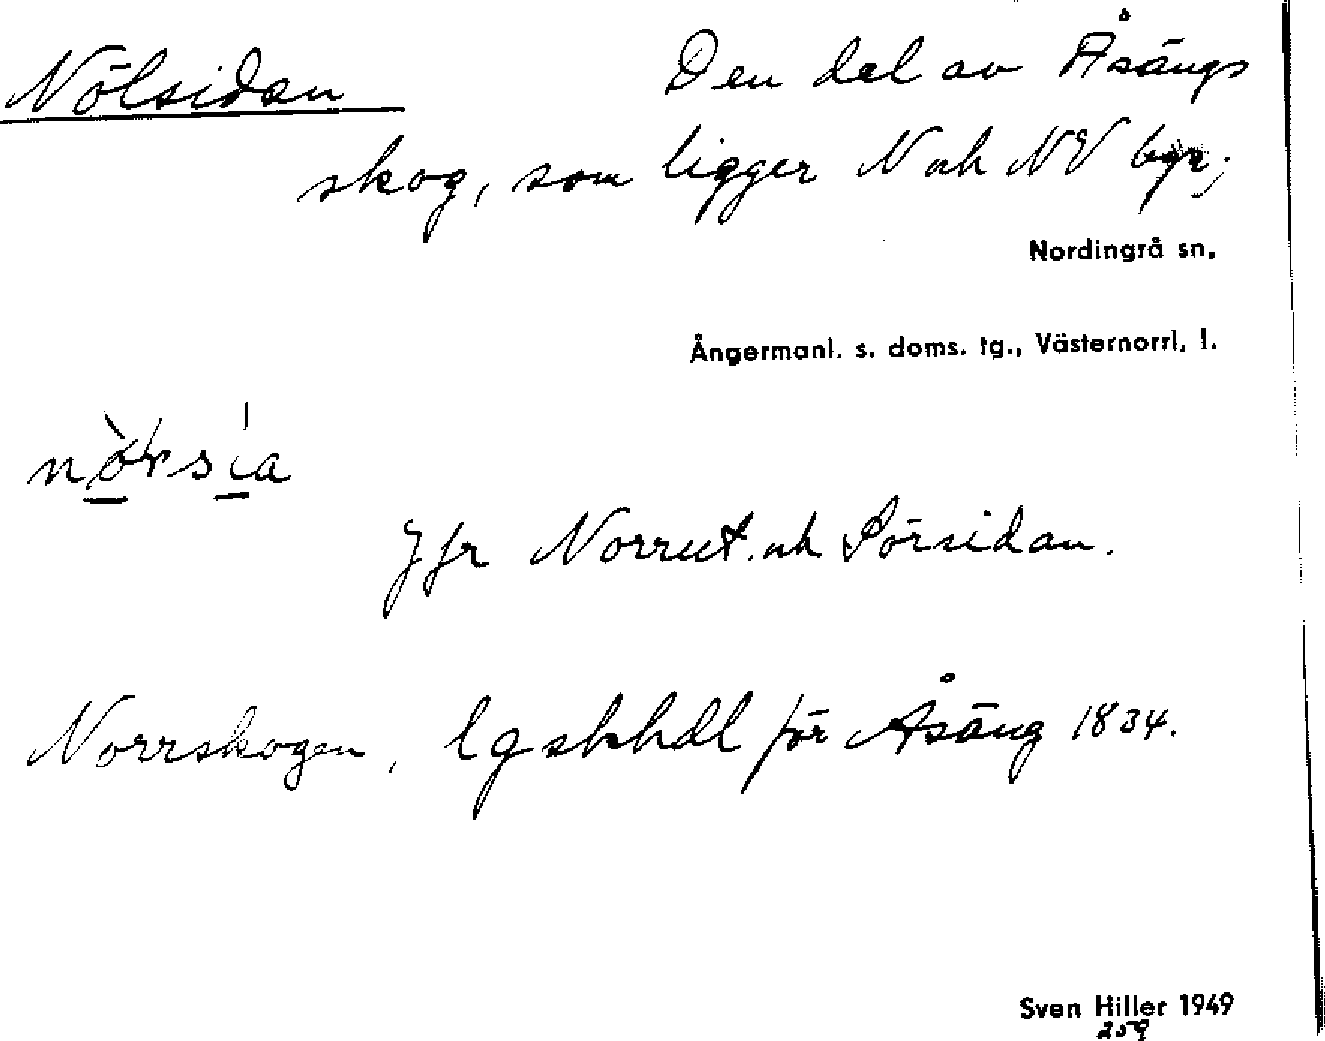 Nölsidan Den del av Åsängs
skog, som ligger N och NV byn;
Nordingrå sn,
Ångermanl. s. doms. tg., Västernorrl. l.
Jfr Norrut. och Sörsidan.
Norrskogen, lgskhdl för Åsäng 1834.
Sven Hiller 1949
259